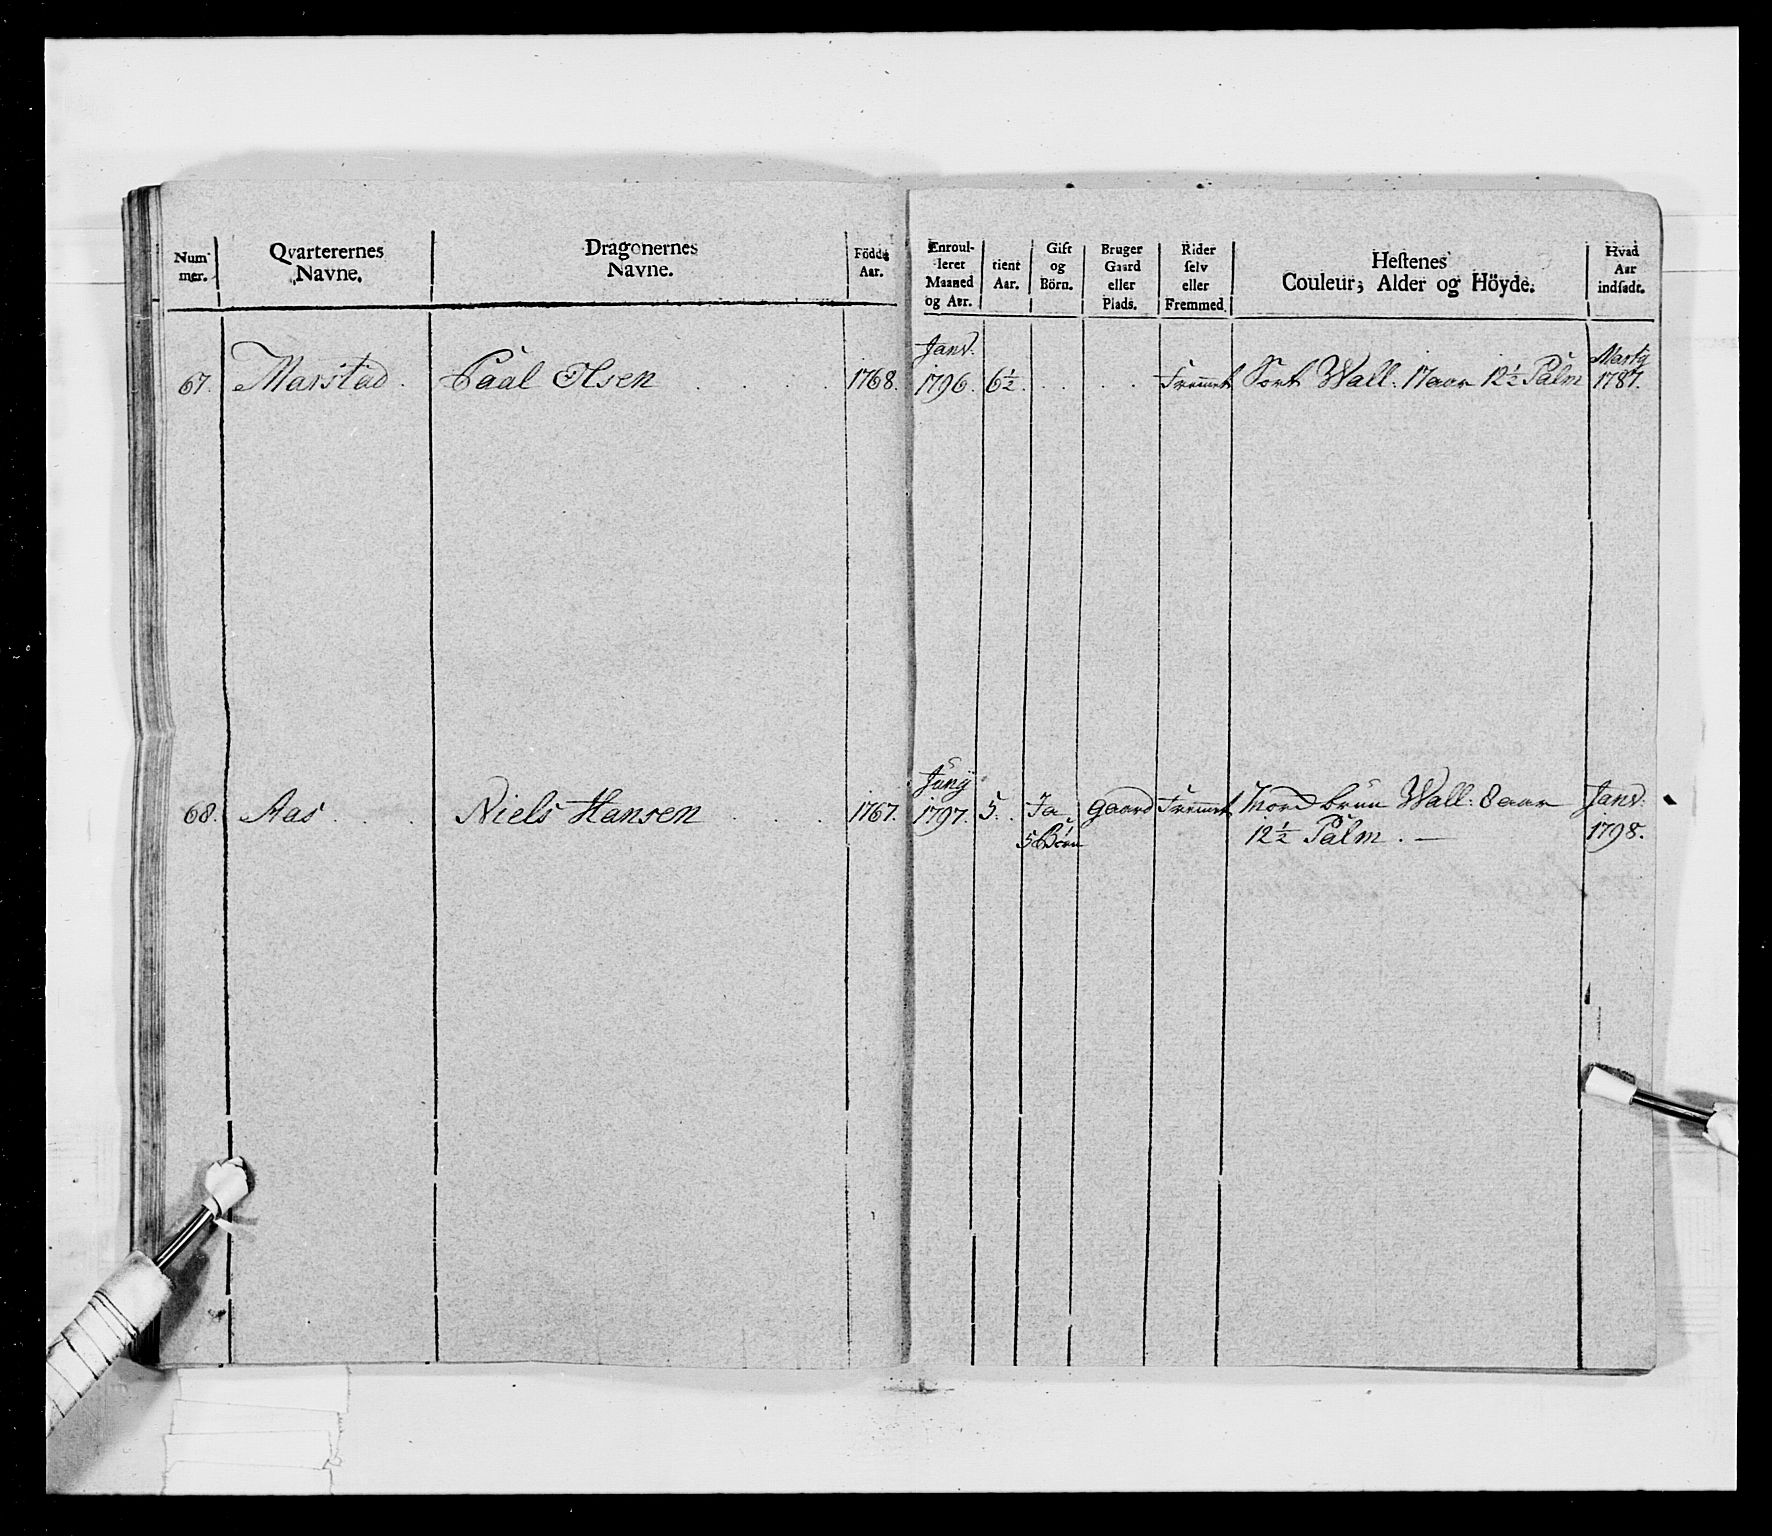 Num- mer.
Qvarterernes Navne.
Dragonernes Navne.
Födde Aar.
Enroul- leret Maaned og Aar.
tient Aar.
Gift og Börn.
Bruger Gaard eller Plads.
Rider selv eller Fremmed.
Hestenes Couleur, Alder og Höyde.
Hvad Aar indsadt.
Janv. Marty
67. Marstad. Paal Olsen 1768. 1796. 6½. Fremmet Sort Wall: 17 aar 12½ Palm 1787.
Juny
68. Aas Niels Hansen 1767. 1797. 5. Ja, gaard Fremmet Mord brun Wall: 8 aar Janv:
5 Börn 12½ Palm. — 1798.